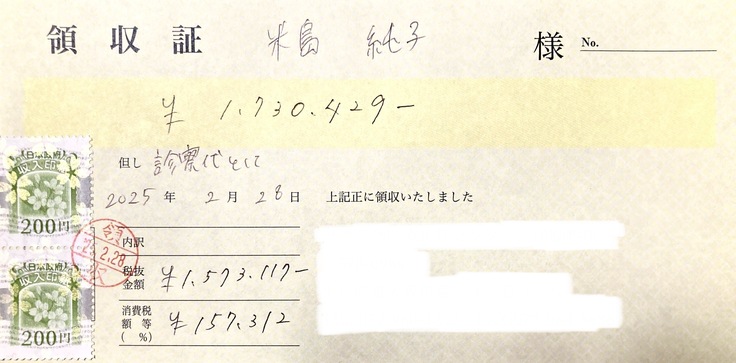 領収証 米島 純子 様 No.
¥1,730,429-
但し 診察代として
2025年 2月 28日 上記正に領収いたしました
内訳
税抜金額 ¥1,573,117-
消費税額等(%) ¥157,312
日本政府
収入印紙
200円
2.28
日本政府
収入印紙
200円